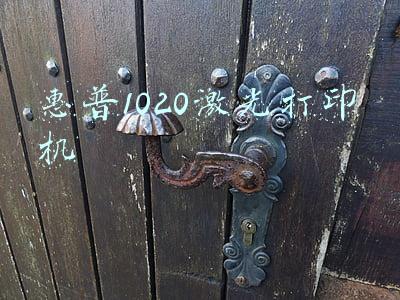 惠普1020激光打印
机